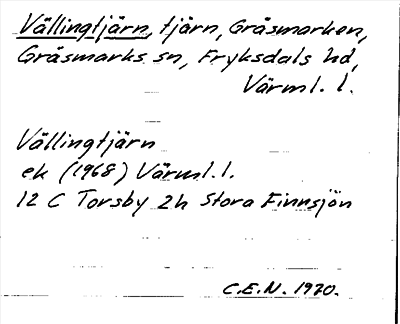 Vällingtjärn, tjärn, Gräsmarken,
Gräsmarks sn, Fryksdals hd,
Värml. l.
Vällingtjärn
ek (1968) Värml. l.
12 C Torsby 2h Stora Finnsjön
C.E.N. 1970.